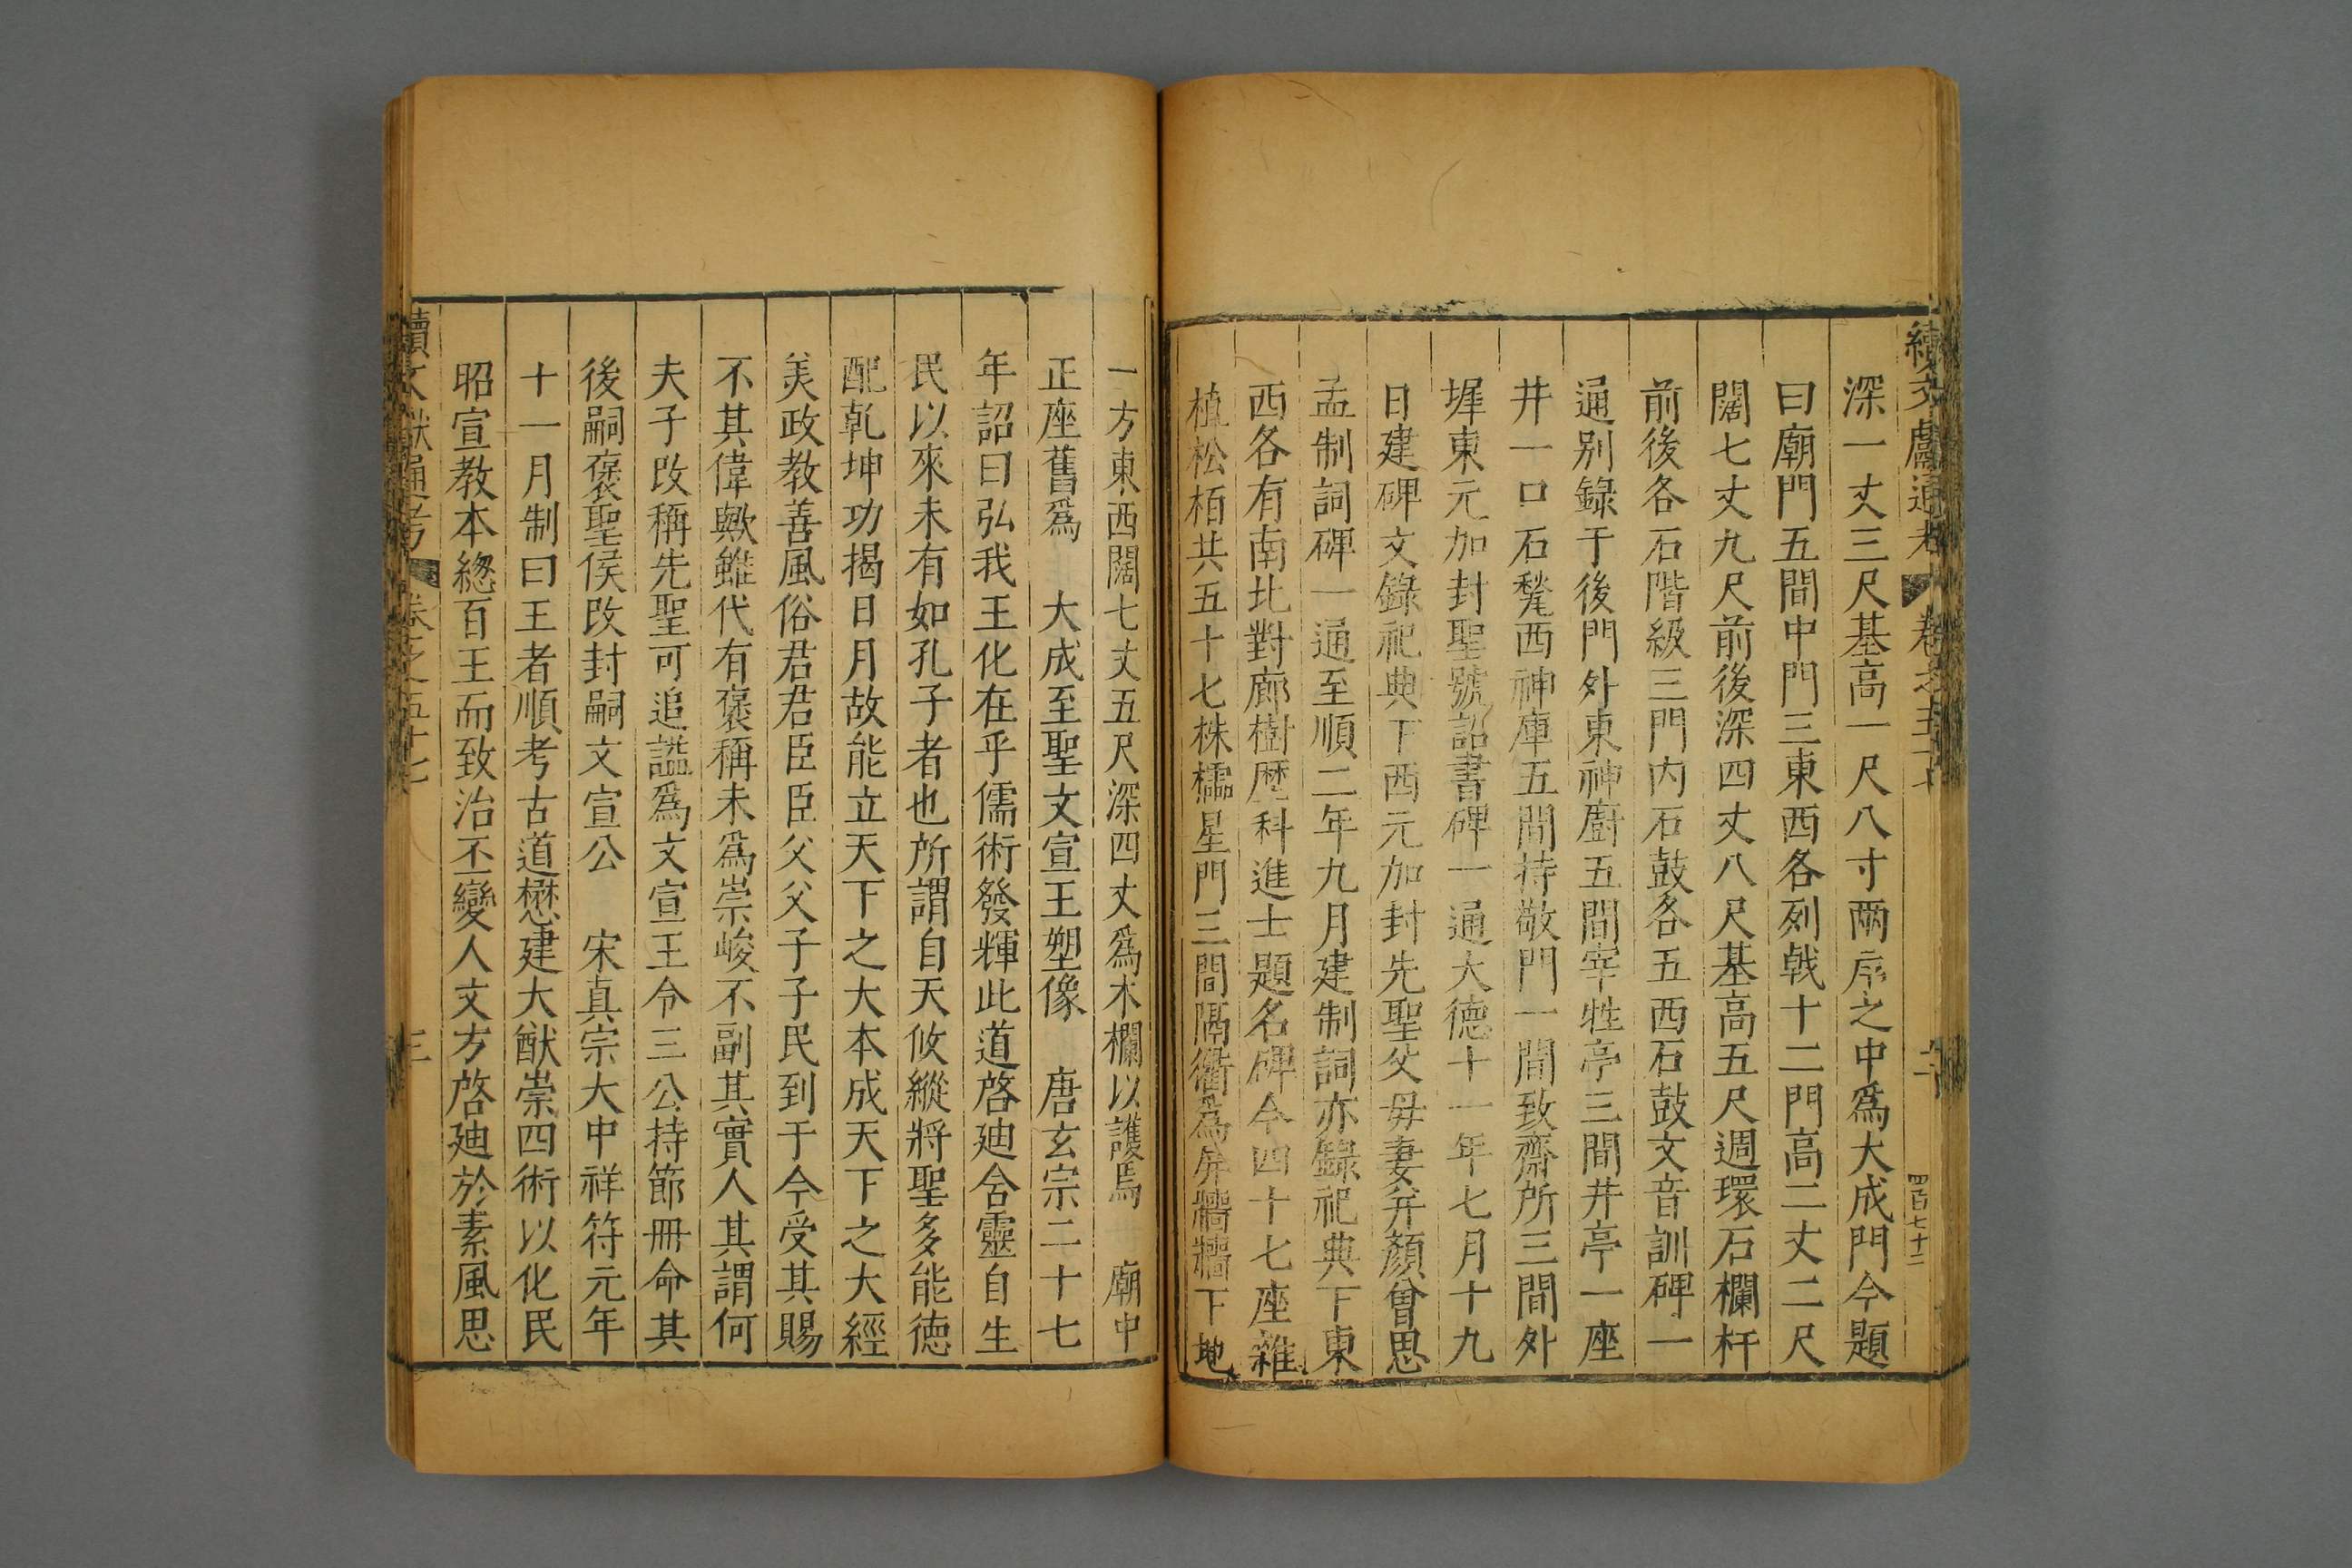 續文獻通考 卷之五十七 二 四百七十二
深一丈三尺基高一尺八寸兩序之中爲大成門今題
曰廟門五間中門三東西各列戟十二門高二丈二尺
闊七丈九尺前後深四丈八尺基高五尺週環石欄杆
前後各石階級三門内石鼓各五西石鼓文音訓碑一
通别錄于後門外東神廚五間宰牲亭三間井亭一座
井一口石甃西神庫五間持敬門一間致齋所三間外
墀東元加封聖號詔書碑一通大德十一年七月十九
日建碑文錄祀典下西元加封先聖父毋妻并顏曾思
孟制詞碑一通至順二年九月建制詞亦錄祀典下東
西各有南北對廊樹歷科進士題名碑今四十七座雜
植松栢共五十七株櫺星門三間隔衢爲屏牆牆下地
一方東西闊七丈五尺深四丈爲木欄以護焉 廟中
正座舊爲 大成至聖文宣王塑像 唐玄宗二十七
年詔曰弘我王化在乎儒術發輝此道啓廸含靈自生
民以來未有如孔子者也所謂自天攸縱將聖多能德
配乾坤功揭日月故能立天下之大本成天下之大經
美政教善風俗君君臣臣父父子子民到于今受其賜
不其偉歟雖代有褒稱未爲崇峻不副其實人其謂何
夫子旣稱先聖可追謚爲文宣王令三公持節冊命其
後嗣褒聖侯改封嗣文宣公 宋真宗大中祥符元年
十一月制曰王者順考古道懋建大猷崇四術以化民
昭宣教本總百王而致治丕變人文方啓廸於素風思
續文獻通考 卷之五十七 三